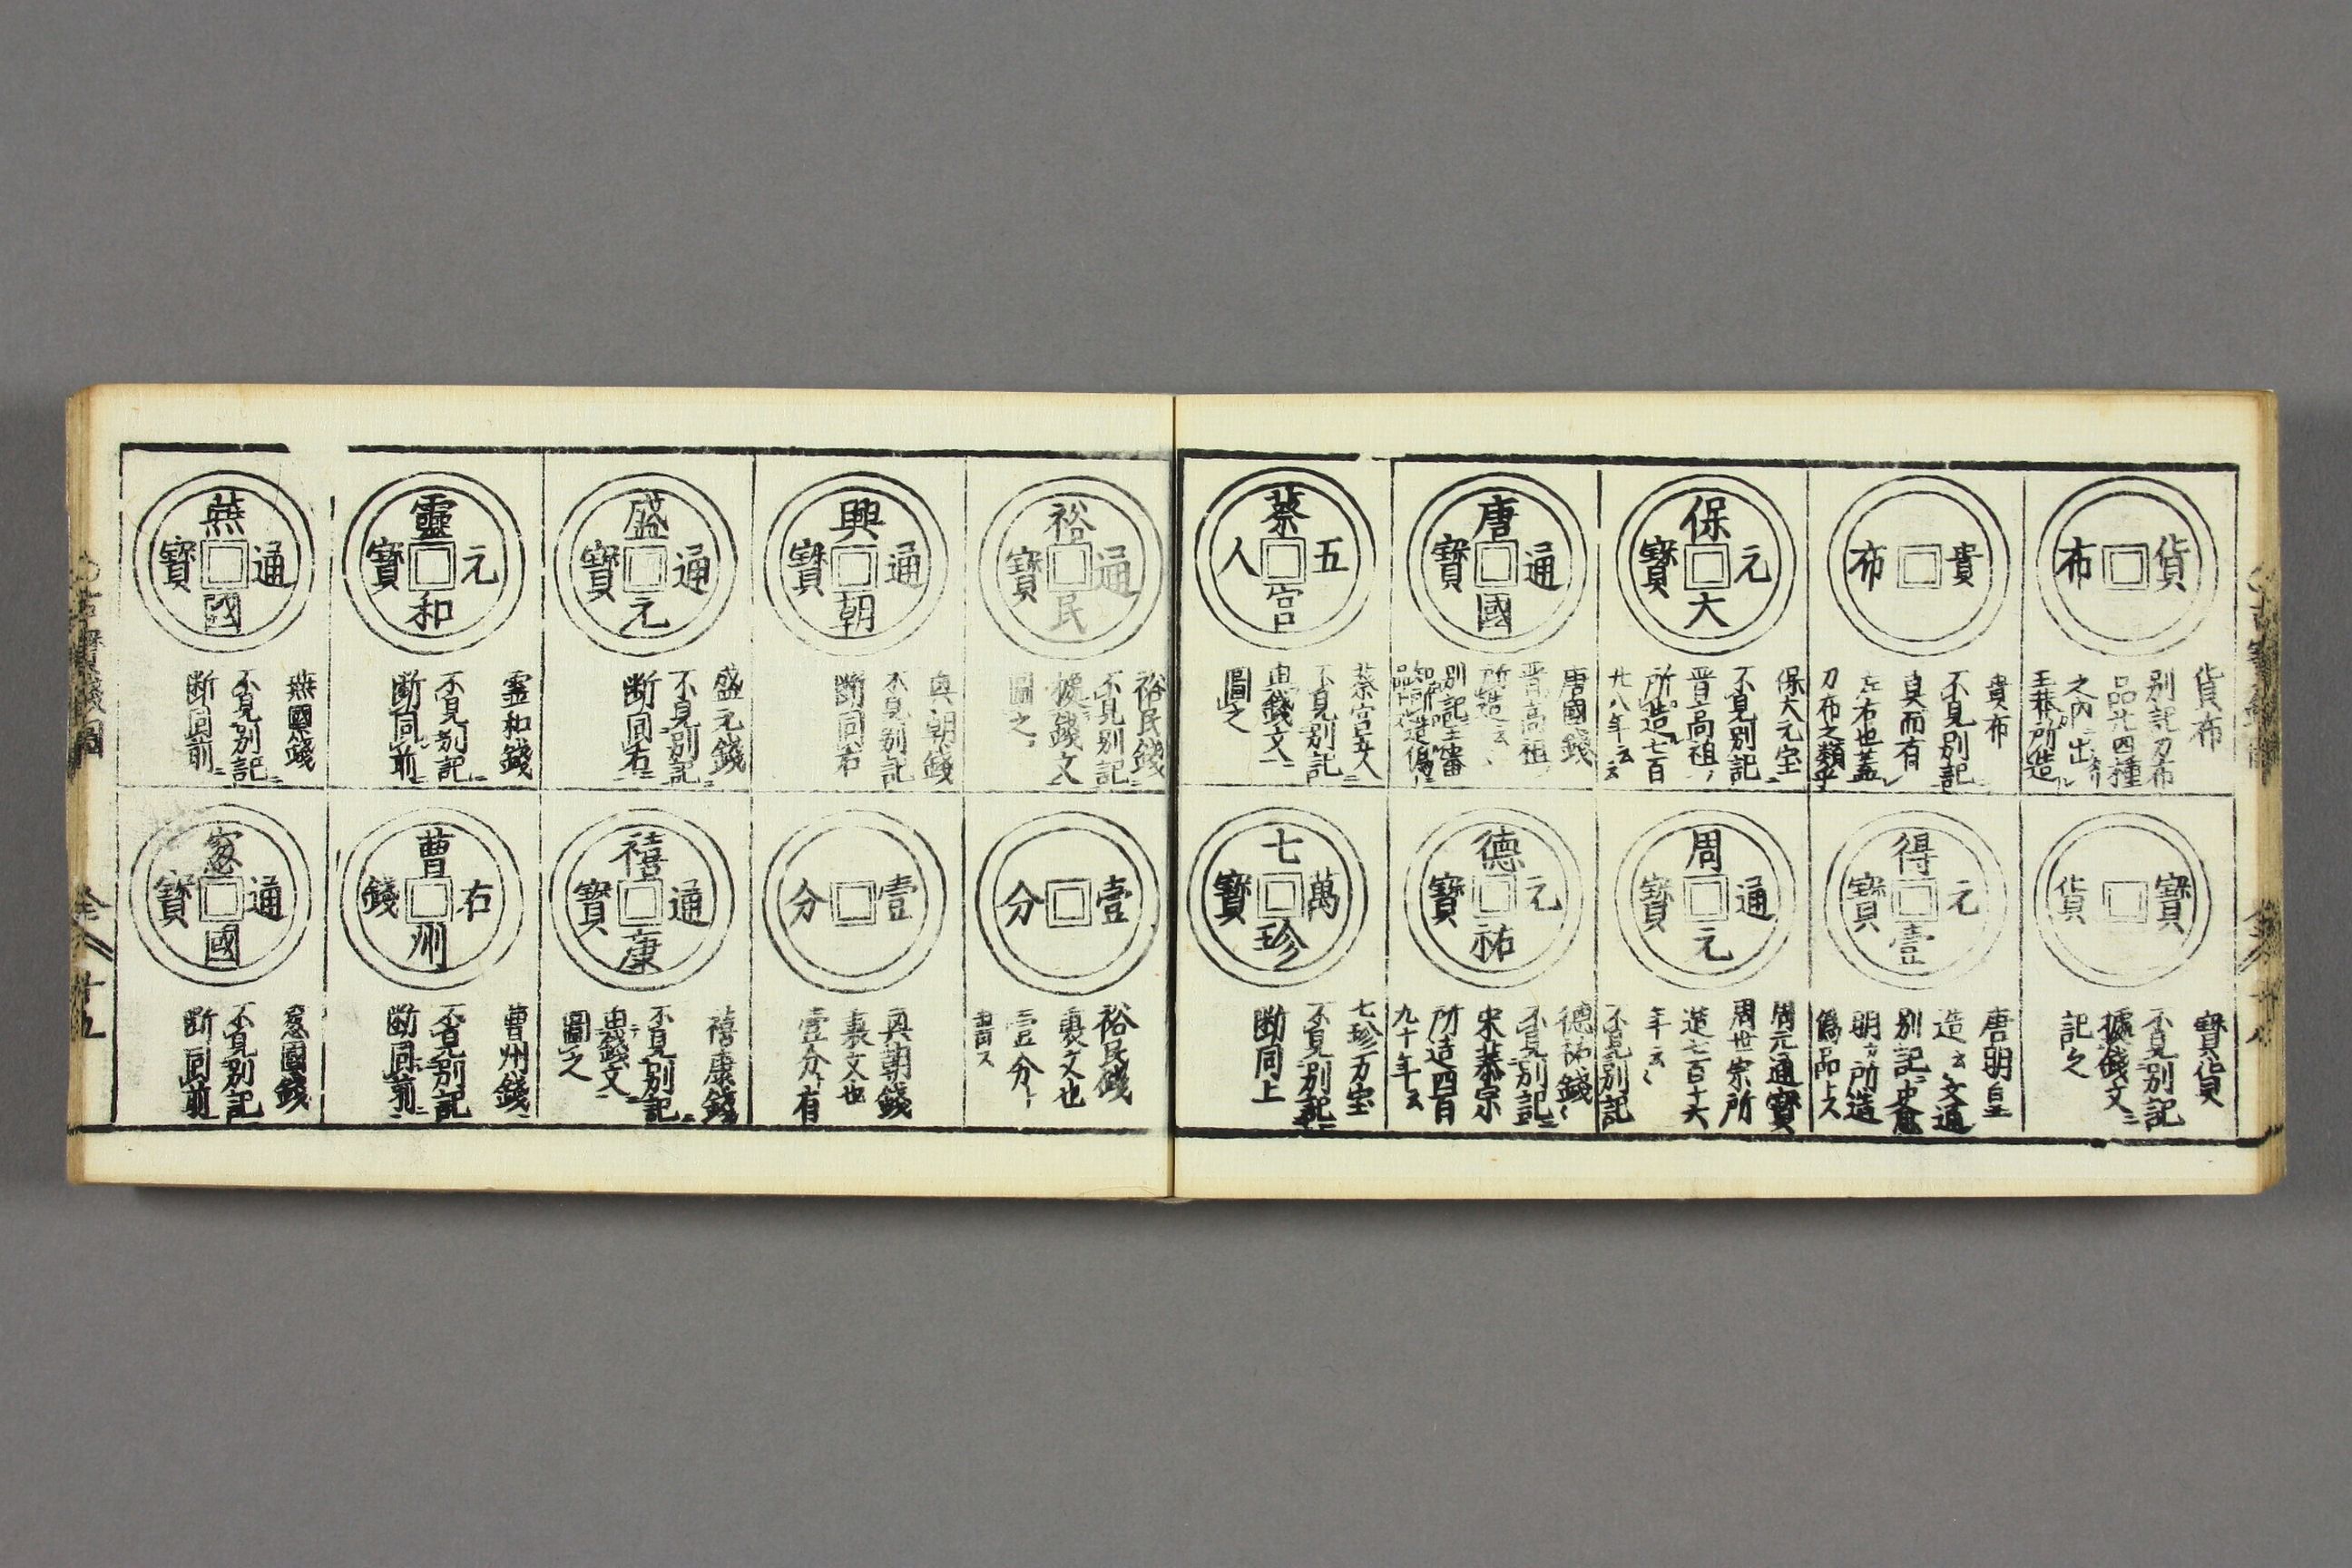 貨布
貨布
別記刀布
品廿四種
之內出
王莽所造
貴布
貴布
不見別記
真而有
左右也蓋
刀布之類乎
保大元寶
保大元宝
不見別記
晋高祖
所造七百
廿八年云云
唐國通寶
唐國錢
晋高祖
所造云
別記
蔡宮五人
蔡宮五人
不見別記
由錢文
圖之
寶貨
寶貨
不見別記
據錢文
記之
得壹元寶
唐明皇
造云文通
別記
明所造
偽品
周元通寶
周元通寶
周世宗所
造七百十六
年云
德祐元寶
不見別記
德祐錢
不見別記
宋恭宗
所造四百
九十年云
七珍萬寶
七珍万宝
不見別記
断同上
裕民通寶
裕民錢
不見別記
據錢文
圖之
興朝通寶
興朝錢
不見別記
断同右
盛元通寶
盛元錢
不見別記
断同右
靈和元寶
霊和錢
不見別記
断同前
燕國通寶
燕國錢
不見別記
断同前
壹分
裕民錢
裏文也
壹分
壹分
興朝錢
裏文也
壹分有
禧康通寶
禧康錢
不見別記
由錢文
圖之
曹州右錢
曹州錢
不見別記
断同前
國通寶
國錢
不見別記
断同前
廿五